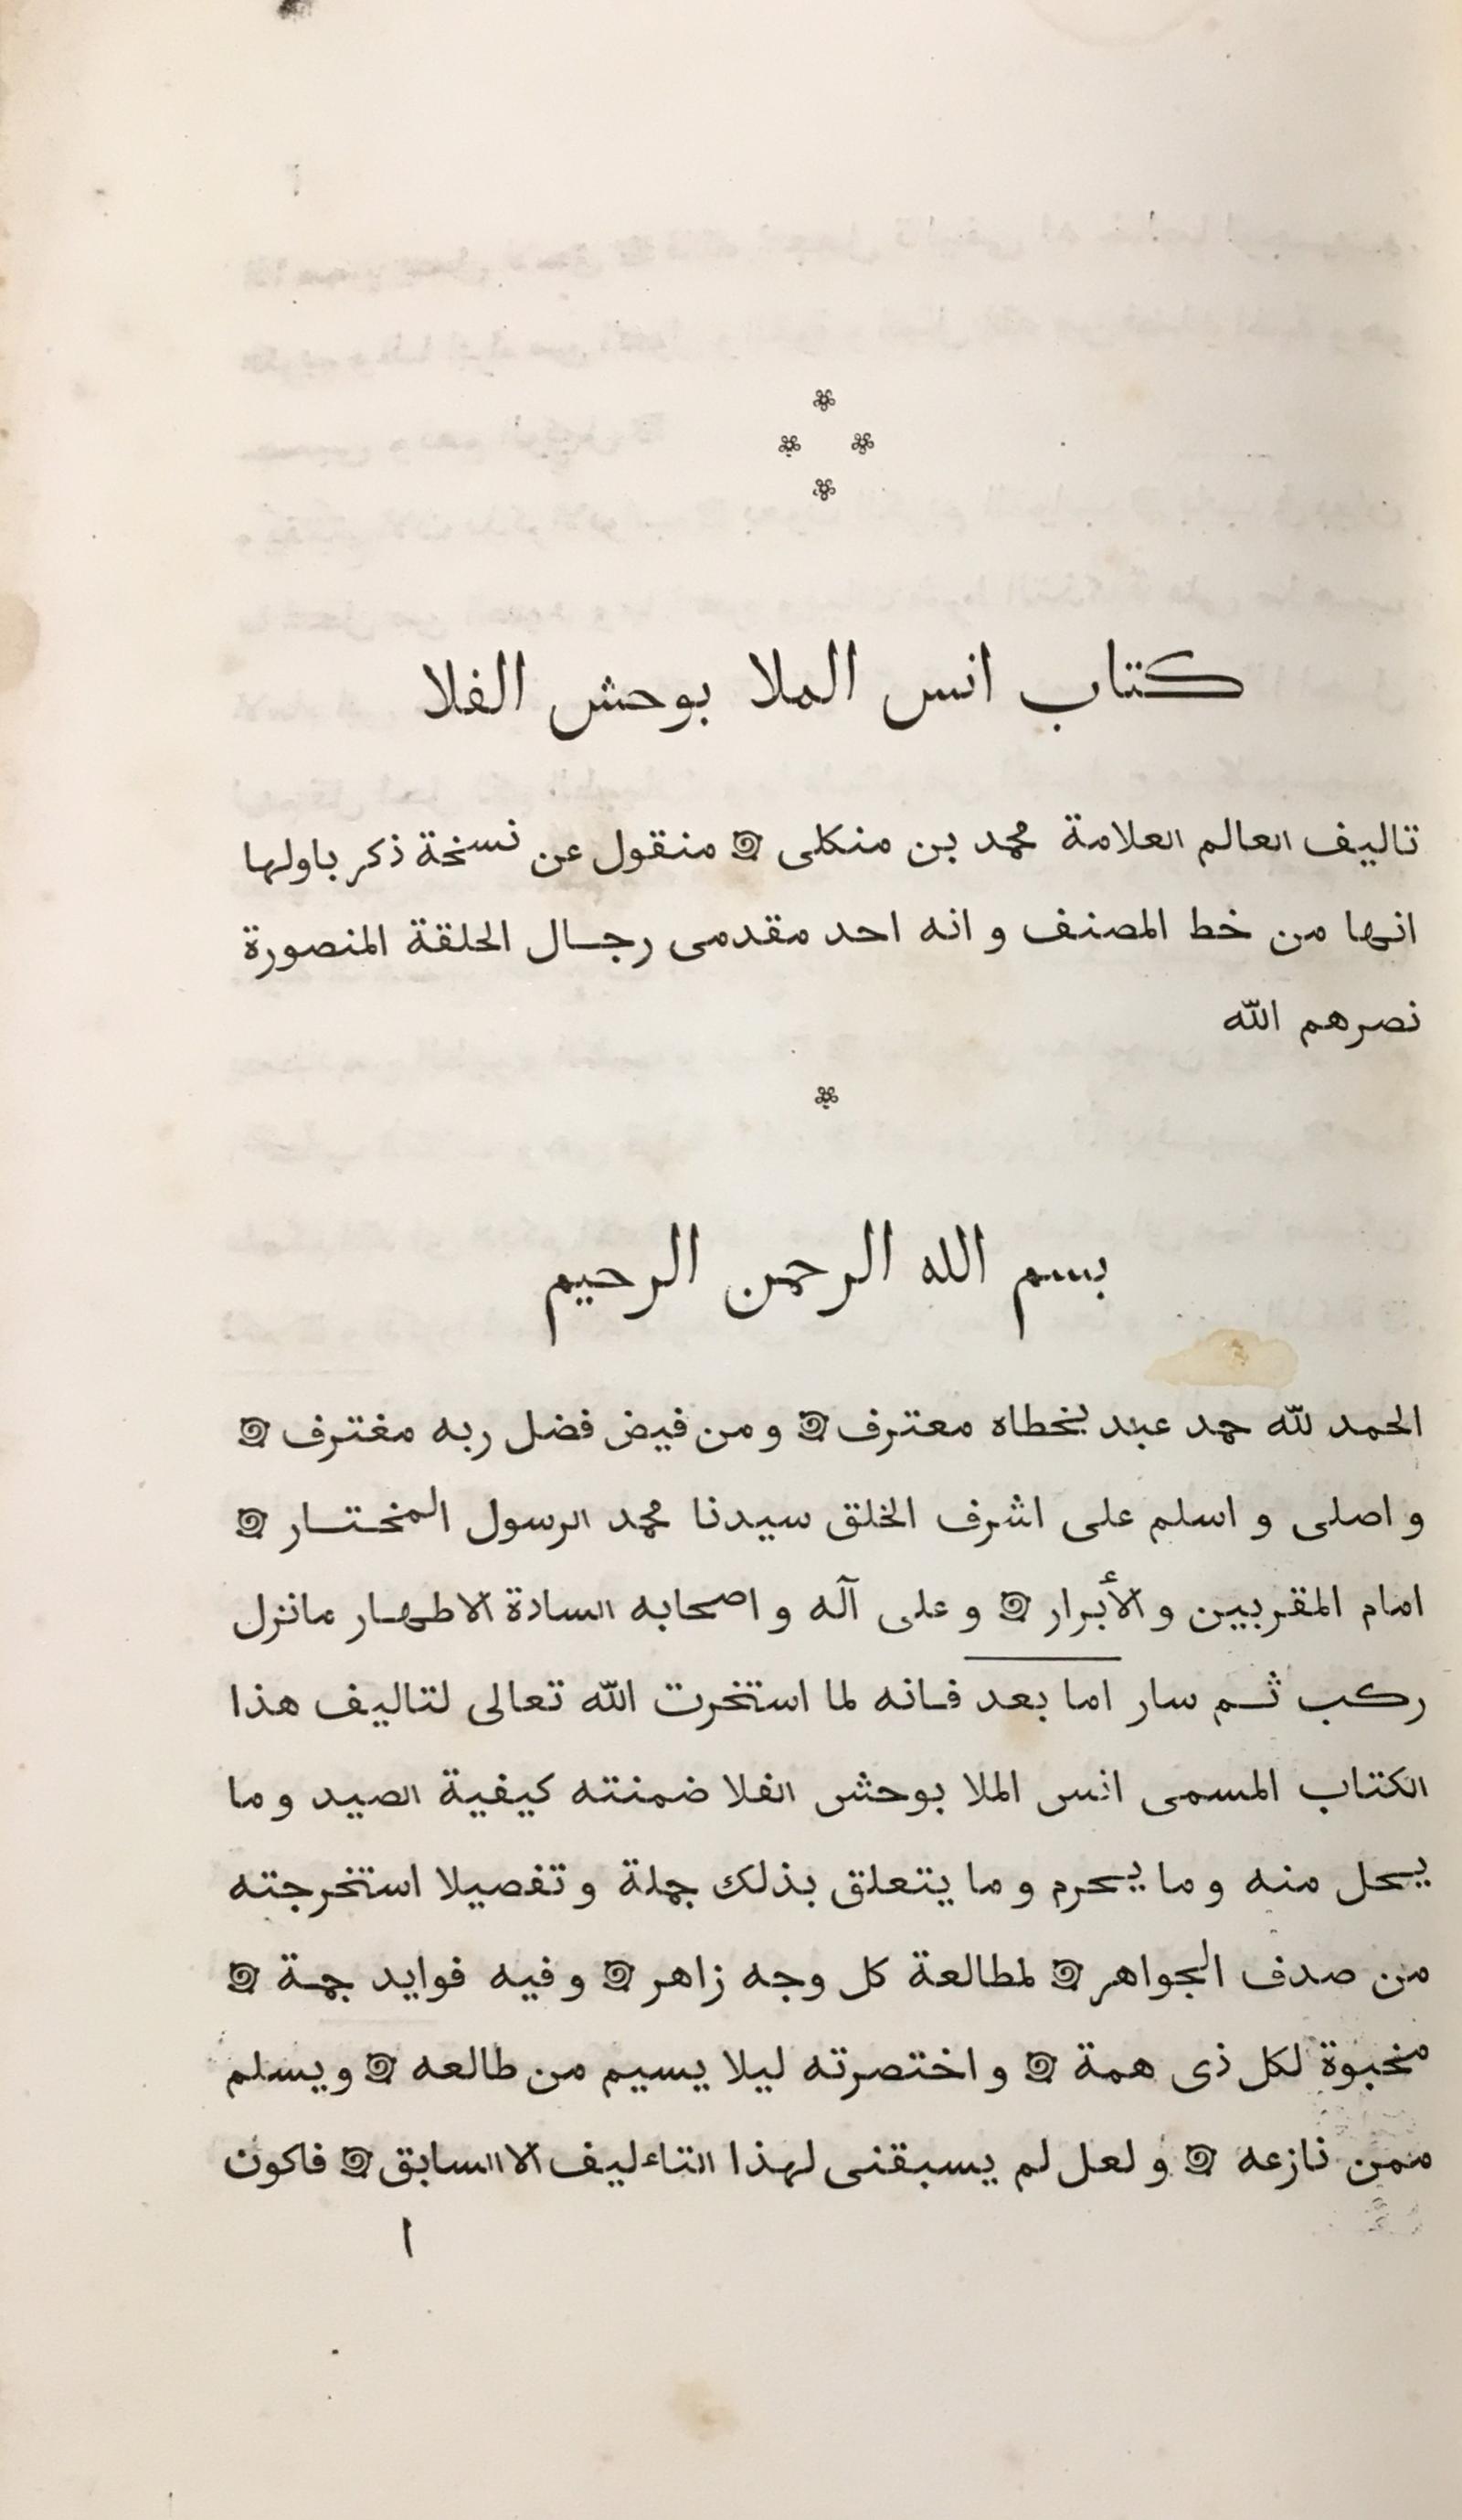 كتاب انس الملا بوحش الفلا
تاليف العالم العلامة محمد بن منكلى ۞ منقول عن نسخة ذكر باولها
انها من خط المصنف و انه احد مقدمى رجـال الحلقة المنصورة
نصرهم الله
بسم الله الرحمن الرحيم
الحمد لله حمد عبد بخطاه معترف ۞ و من فيض فضل ربه مغترف ۞
و اصلى و اسلم على اشرف الخلق سيدنا محمد الرسول المختـار ۞
امام المقربين و الأبرار ۞ و على آله و اصحابه السادة الاطهار مانزل
ركب ثـم سار اما بعد فـانه لما استخرت الله تعالى لتاليف هذا
الكتاب المسمى انس الملا بوحش الفلا ضمنته كيفية الصيد و ما
يحل منه و ما يحرم و ما يتعلق بذلك جملة و تفصيلا استخرجته
من صدف الجواهر ۞ لمطالعة كل وجه زاهر ۞ و فيه فوايد جمـة ۞
مخبوة لكل ذى همة ۞ و اختصرته ليلا يسيم من طالعه ۞ و يسلم
ممن نازعه ۞ و لعل لم يسبقنى لهذا التاءليف الا السابق ۞ فاكون
١